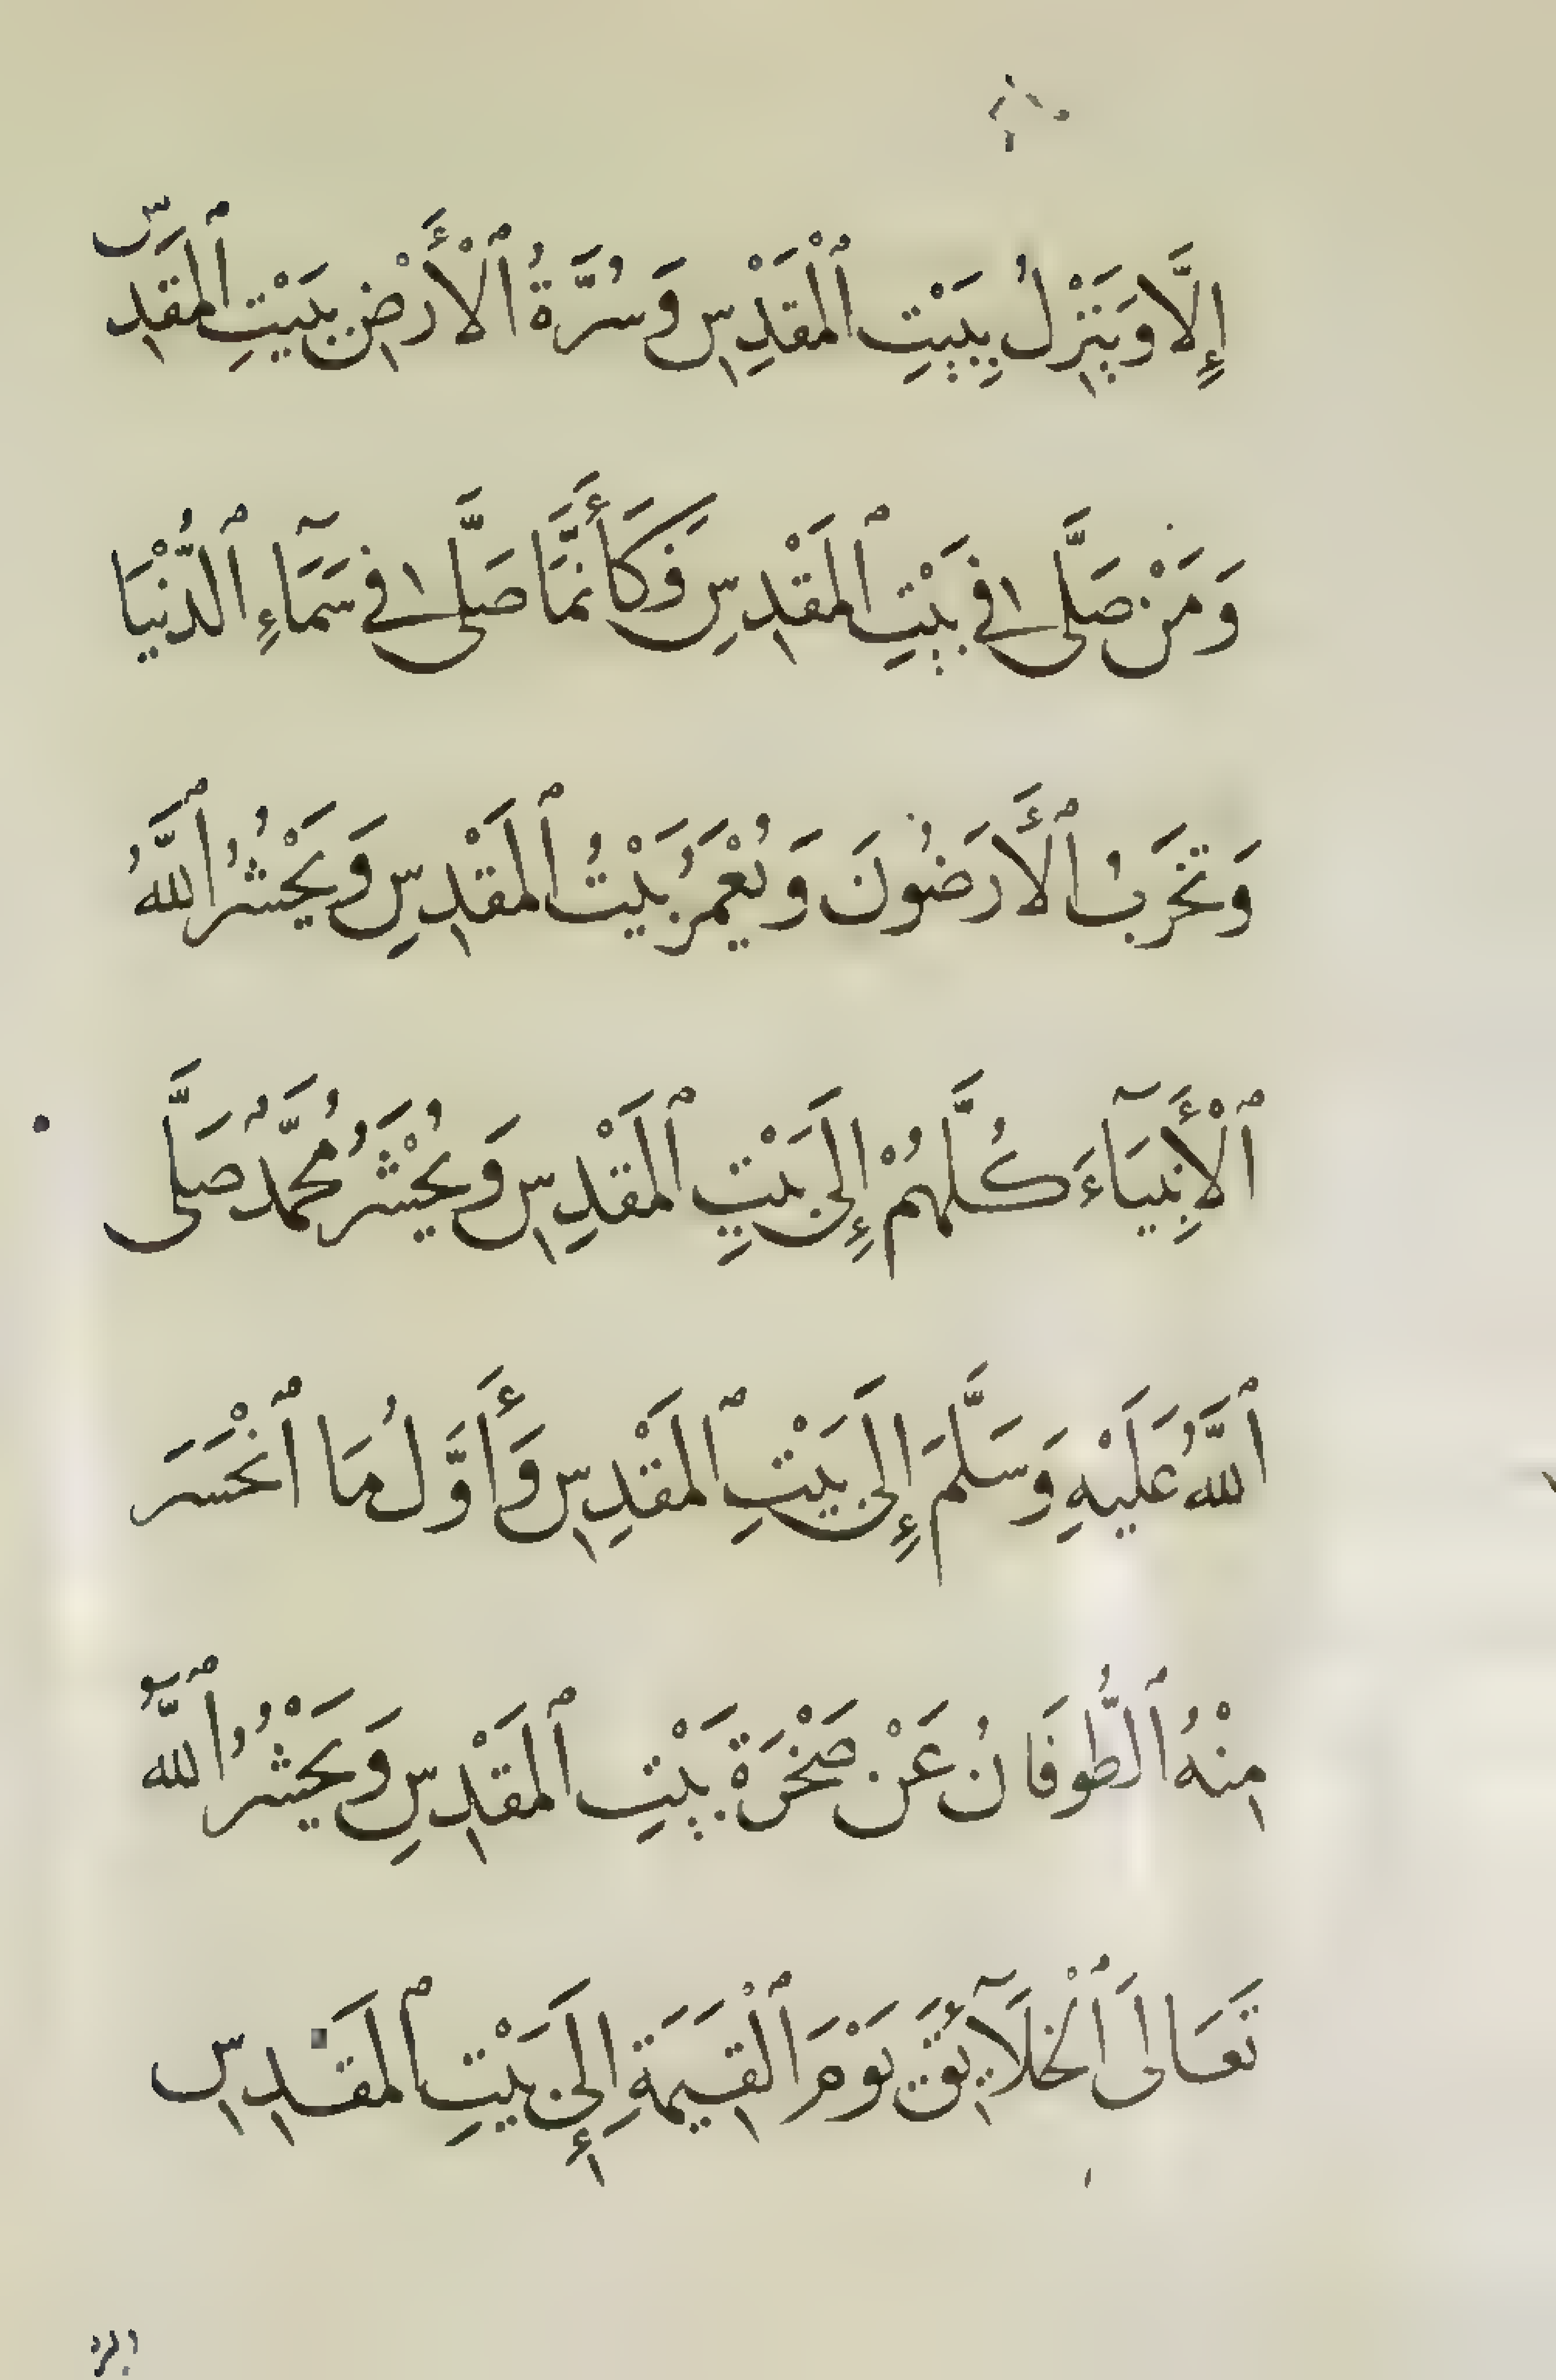 إِلَّا وَيَنْزِلُ بِبَيْتِ ٱلْمَقْدِسِ وَسُرَّةُ ٱلْأَرْضِ بَيْتِ ٱلمَقدِسِّ
وَمَنْ صَلَّى فِي بَيْتِ ٱلمَقْدِسِ فَكَأَنَّمَا صَلَّى فِي سَمَآءِ ٱلدُّنْيَا
وَتَخْرَبُ ٱلأَرَضُونَ وَيُعْمَرُ بَيْتُ ٱلمَقْدِسِ وَيَحْشُرُ ٱللَّهُ
ٱلْأَنبِيَآءَ كُلَّهُمْ إِلَى بَيْتِ ٱلمَقْدِسِ وَيُحْشَرُ مُحَمَّدٌ صَلَّى
ٱللَّهُ عَلَيْهِ وَسَلَّمَ إِلَى بَيْتِ ٱلمَقْدِسِ وَأَوَّلُ مَا ٱنْحَسَرَ
مِنْهُ ٱلطُّوفَانُ عَنْ صَخْرَةِ بَيْتِ ٱلمَقْدِسِ وَيَحْشُرُ ٱللَّهُ
تَعَالَى ٱلْخَلَآئِقَ يَوْمَ ٱلْقِيَمَةِ إِلَى بَيْتِ ٱلمَقْدِسِ